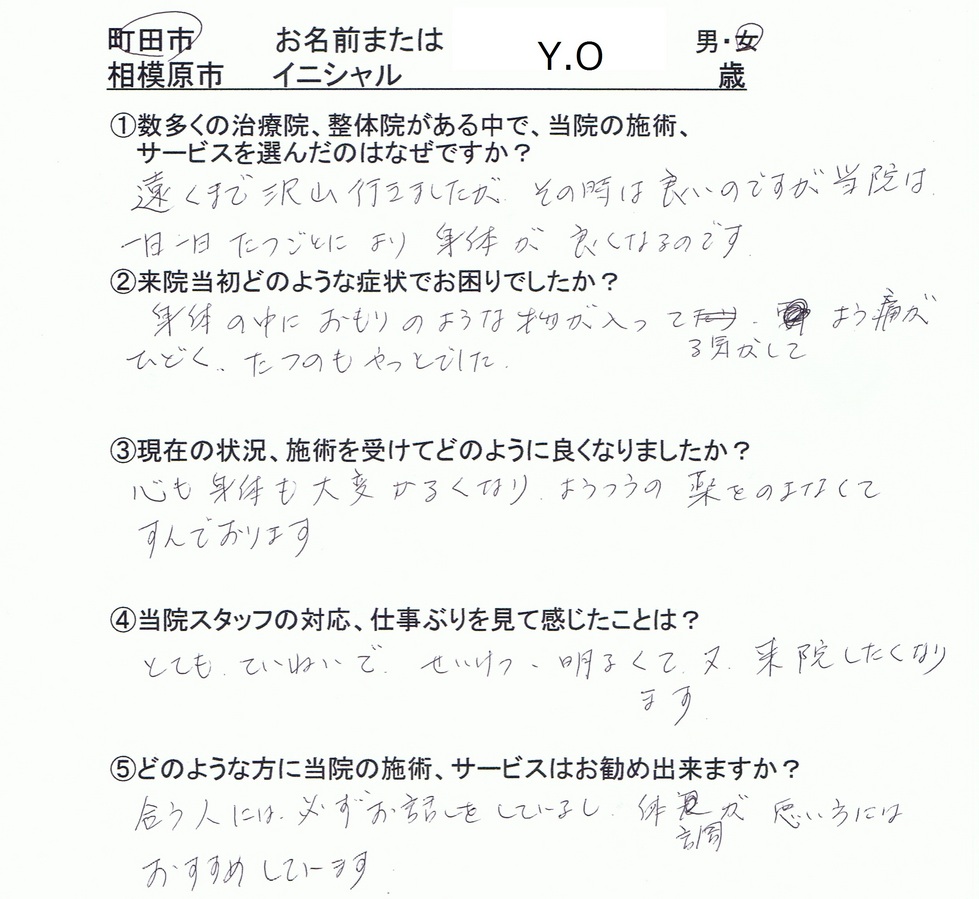 町田市 お名前または 男・女
相模原市 イニシャル Y.O 歳
①数多くの治療院、整体院がある中で、当院の施術、
サービスを選んだのはなぜですか？
遠くまで沢山行きましたが、その時は良いのですが当院は、
一日一日たつごとにより身体が良くなるのです。
②来院当初どのような症状でお困りでしたか？
身体の中におもりのような物が入って よう痛が
る気がして
ひどく、たつのもやっとでした。
③現在の状況、施術を受けてどのように良くなりましたか？
心も身体も大変かるくなり、ようつうの薬をのまなくて
すんでおります
④当院スタッフの対応、仕事ぶりを見て感じたことは？
とても、ていねいで、せいけつ、明るくて、又、来院したくなり
ます。
⑤どのような方に当院の施術、サービスはお勧め出来ますか？
合う人には、必ずお話しをしているし、体 が 悪い方には
調
おすすめしています。